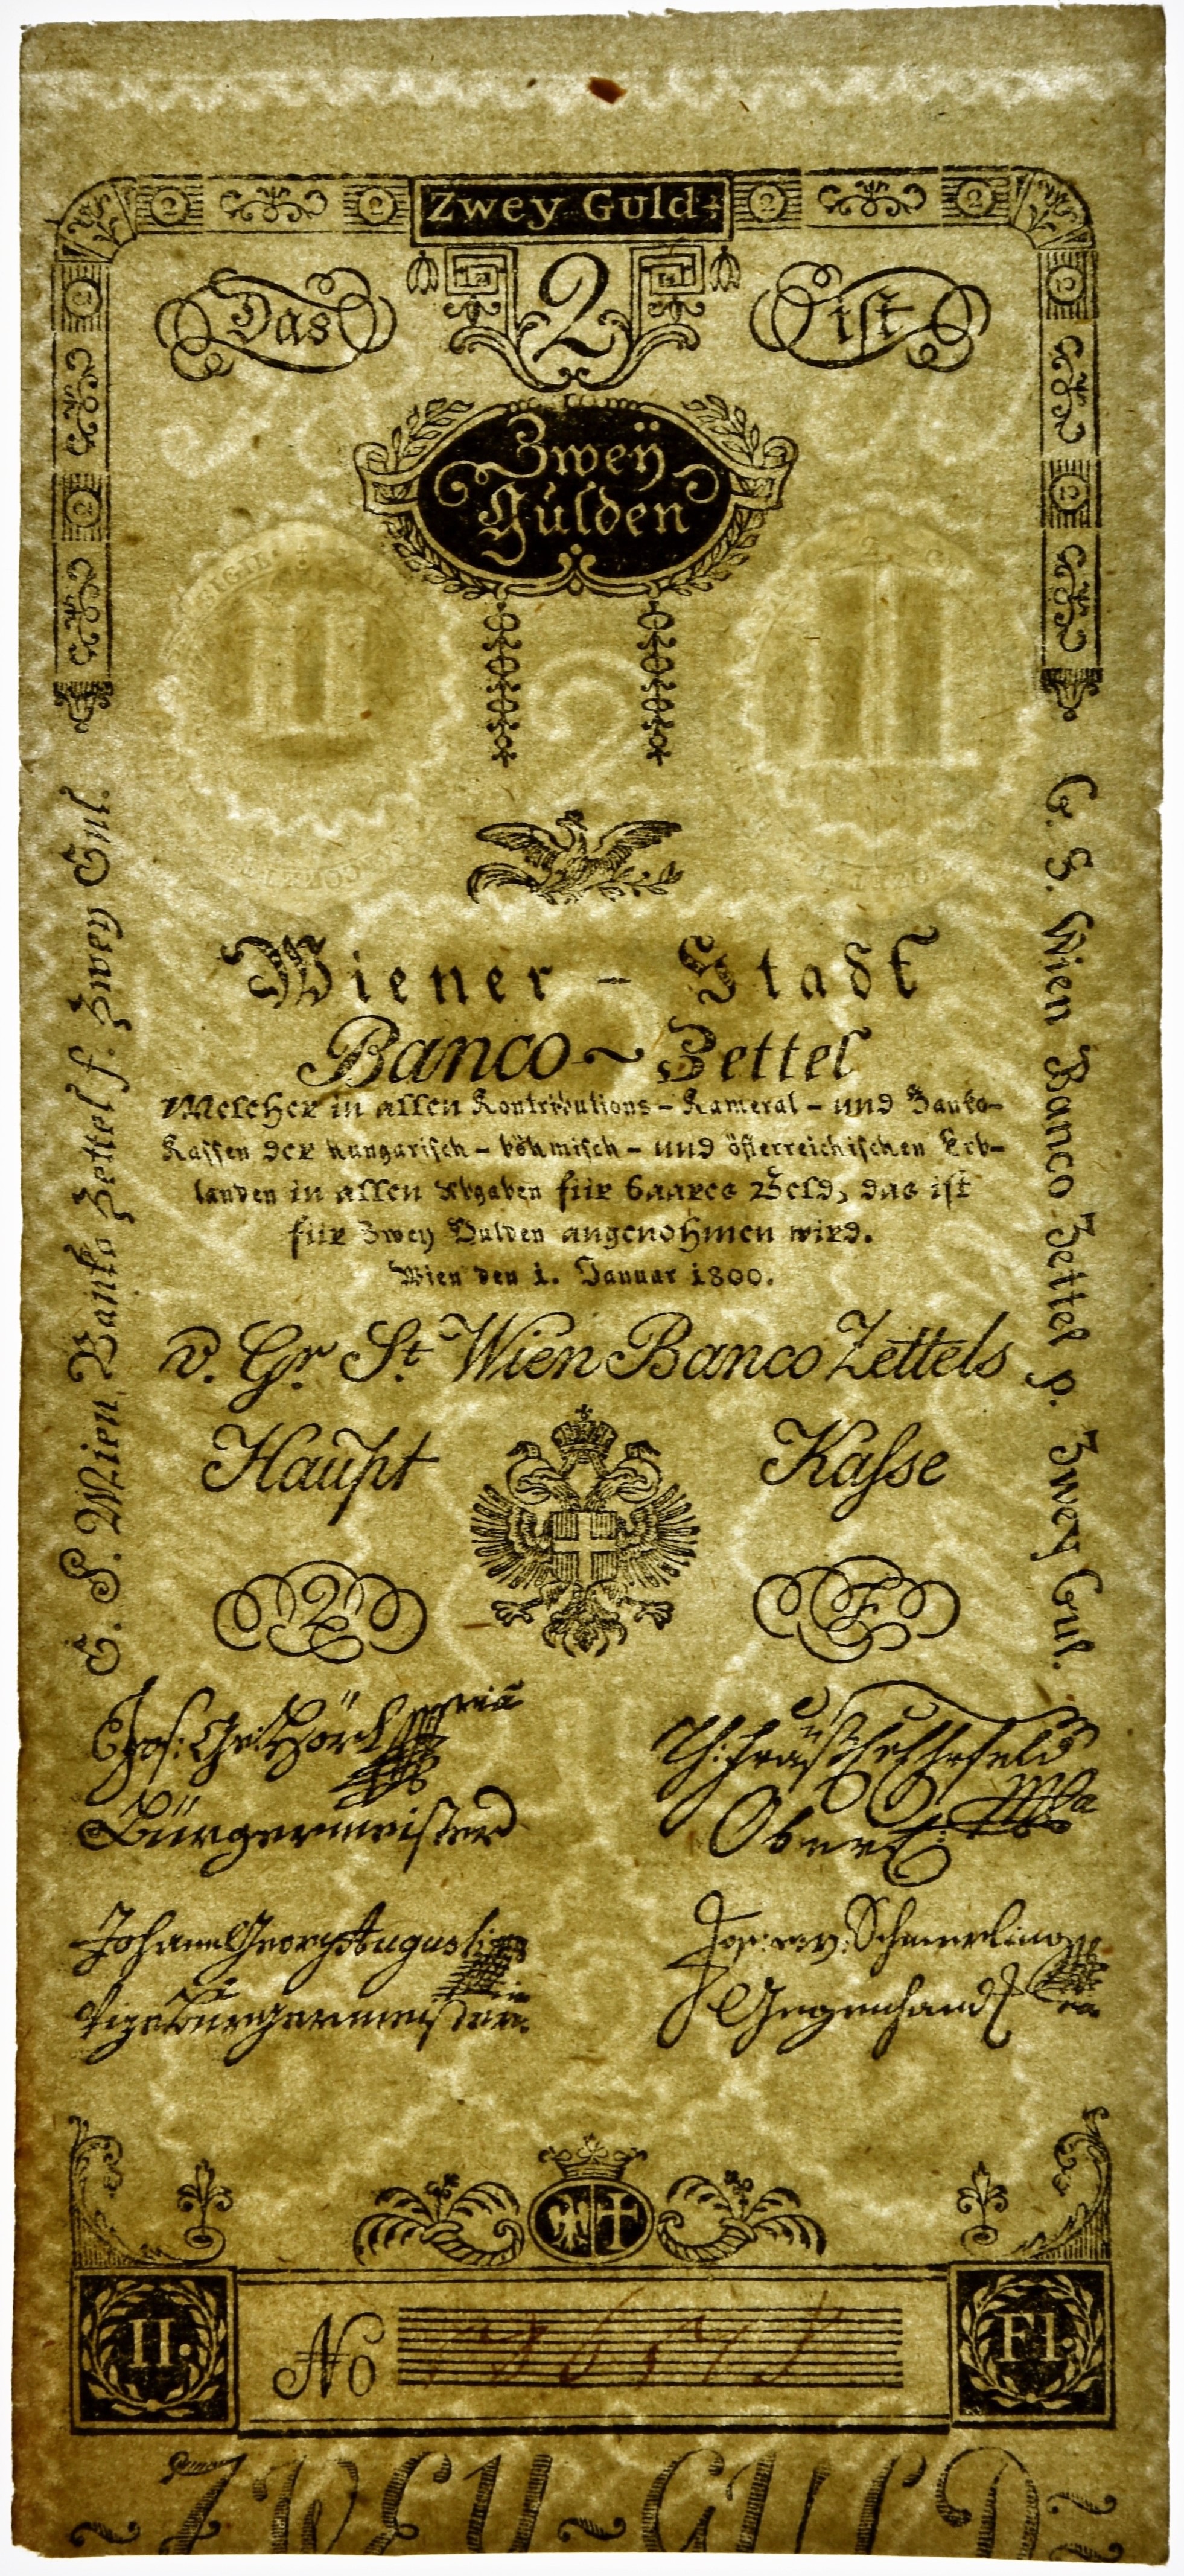 Zwey Guld:
2 2 2 2
Das 2 ist
Zweÿ
Gulden
Wiener - Stadt
Banco ~ Zettel
Welcher in allen Kontributions - Kameral - und Banko-
Kassen der hungarisch - böhmisch - und österreichischen Erb-
landen in allen Abgaben für baares Geld, das ist
für Zwey Gulden angenohmen wird.
Wien den 1. Januar 1800.
v. Gr. St. Wien Banco Zettels
Haupt Kasse
2 F
Bürgermeister
Johann Georg Augusti
Vizebürgermeister
v: Schmerling
Gegenhand
No
II. Fl.
ZWEY ~ GULD
G. S. Wien Banko Zettel f. Zwey Gul.
G. S. Wien Banco Zettel p. Zwey Gul.